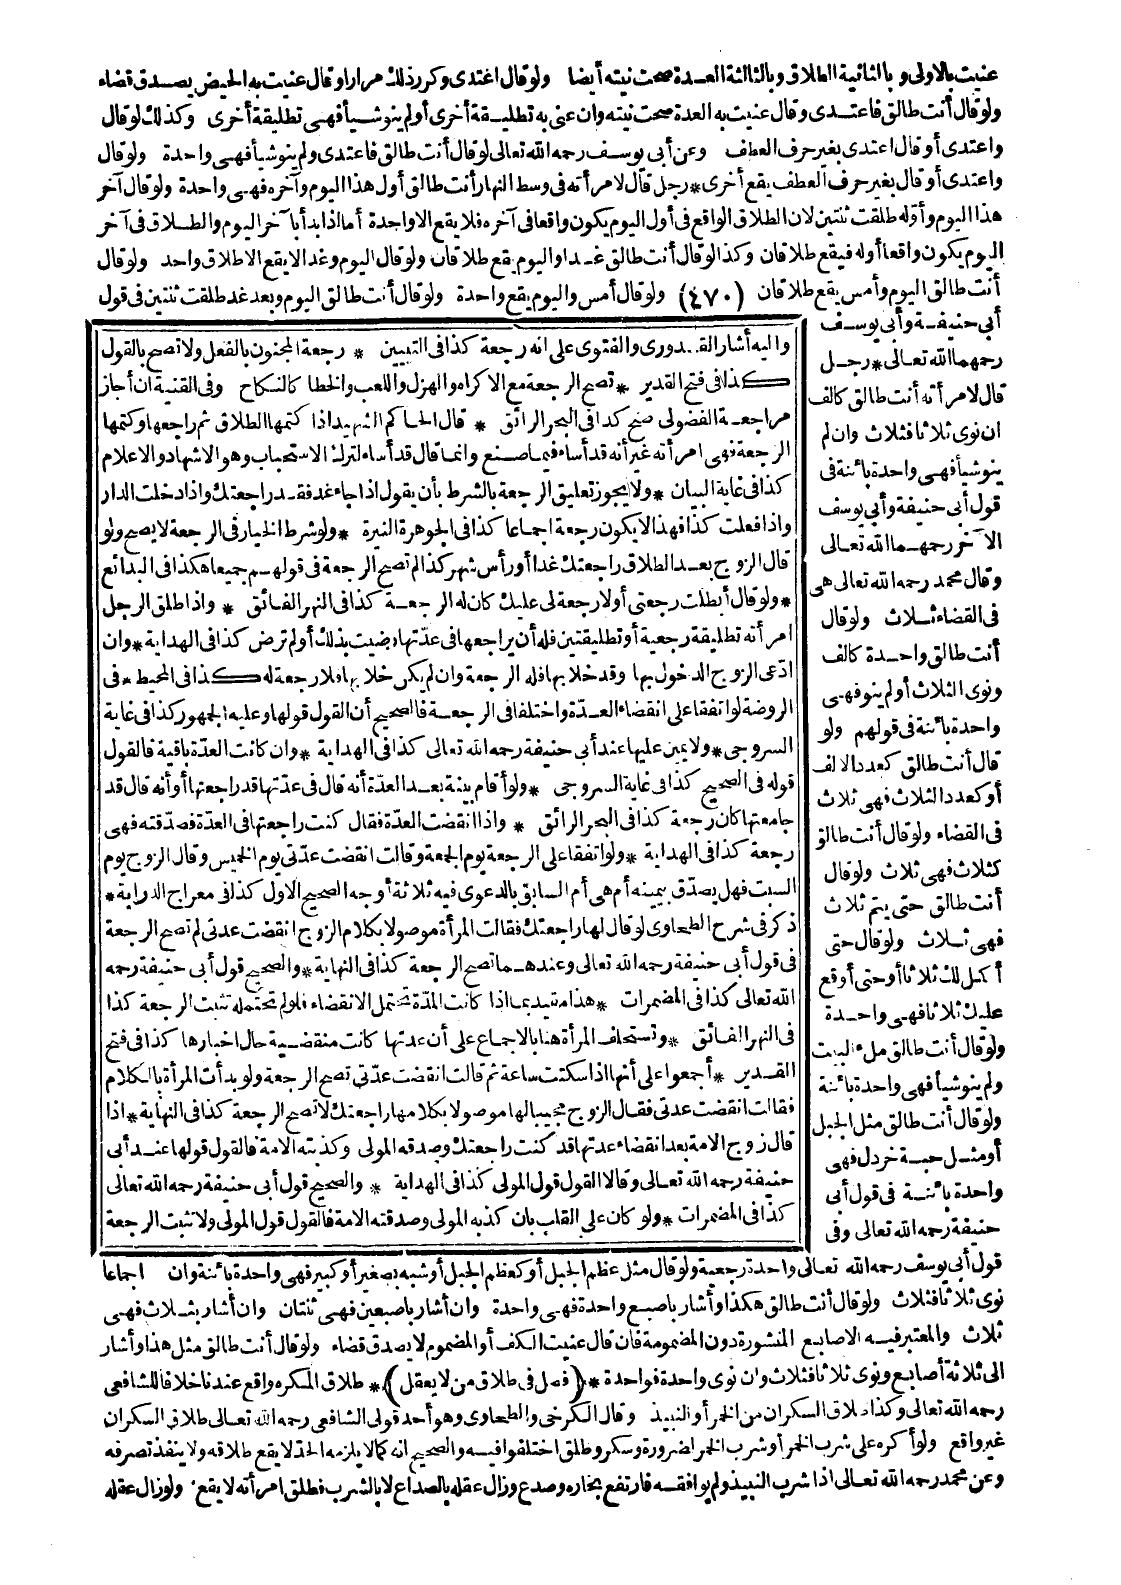 عنيت بالاولى وبالثانية الطلاق وبالثالثة العدة صحت نيته أيضا ولو قال اعتدى وكرر ذلك مرارا وقال عنيت به الحيض يصدق قضاء
ولو قال أنت طالق فاعتدى وقال عنيت به العدة صحت نيته وان عنى به تطليقة أخرى أو لم ينو شيأ فهى تطليقة أخرى وكذلك لو قال
واعتدى أو قال اعتدى بغير حرف العطف وعن أبى يوسف رحمه الله تعالى لو قال أنت طالق فاعتدى ولم ينو شيأ فهى واحدة ولو قال
واعتدى أو قال بغير حرف العطف يقع أخرى * رجل قال لامرأته فى وسط النهار أنت طالق أول هذا اليوم وآخره فهى واحدة ولو قال آخر
هذا اليوم وأوله طلقت ثنتين لان الطلاق الواقع فى أول اليوم يكون واقعا فى آخره فلا يقع الا واحدة أما اذا بدأ بآخر اليوم والطلاق فى آخر
اليوم يكون واقعا أوله فيقع طلاقان وكذا لو قال أنت طالق غدا واليوم يقع طلاقان ولو قال اليوم وغدا لا يقع الا طلاق واحد ولو قال
أنت طالق اليوم وأمس يقع طلاقان (٤٧٠) ولو قال أمس واليوم يقع واحدة ولو قال أنت طالق اليوم وبعد غد طلقت ثنتين فى قول
أبى حنيفة وأبى يوسف
رحمهما الله تعالى * رجل
قال لامرأته أنت طالق كالف
ان نوى ثلاثا فثلاث وان لم
ينو شيأ فهى واحدة بائنة فى
قول أبى حنيفة وأبى يوسف
الآخر رحمهما الله تعالى
وقال محمد رحمه الله تعالى هى
فى القضاء ثلاث ولو قال
أنت طالق واحدة كالف
ونوى الثلاث أو لم ينو فهى
واحدة بائنة فى قولهم ولو
قال أنت طالق كعدد الالف
أو كعدد الثلاث فهى ثلاث
فى القضاء ولو قال أنت طالق
كثلاث فهى ثلاث ولو قال
أنت طالق حتى يتم ثلاث
فهى ثلاث ولو قال حتى
أكمل لك ثلاثا أو حتى أوقع
عليك ثلاثا فهى واحدة
ولو قال أنت طالق ملء البيت
ولم ينو شيأ فهى واحدة بائنة
ولو قال أنت طالق مثل الجبل
أو مثل حبة خردل فهى
واحدة بائنة فى قول أبى
حنيفة رحمه الله تعالى وفى
واليه أشار القدورى والفتوى على انه رجعة كذا فى التبيين * رجعة المجنون بالفعل ولا تصح بالقول
كذا فى فتح القدير * تصح الرجعة مع الاكراه والهزل واللعب والخطا كالنكاح وفى القنية ان أجاز
مراجعة الفضولى صح كذا فى البحر الرائق * قال الحاكم الشهيد اذا كتمها الطلاق ثم راجعها وكتمها
الرجعة فهى امرأته غير أنه قد أساء فيما صنع وانما قال قد أساء لترك الاستحباب وهو الاشهاد والاعلام
كذا فى غاية البيان * ولا يجوز تعليق الرجعة بالشرط بأن يقول اذا جاء غد فقد راجعتك واذا دخلت الدار
واذا فعلت كذا فهذا لا يكون رجعة اجماعا كذا فى الجوهرة النيرة * ولو شرط الخيار فى الرجعة لا يصح ولو
قال الزوج بعد الطلاق راجعتك غدا أو رأس شهر كذا لم تصح الرجعة فى قولهم جميعا هكذا فى البدائع
* ولو قال أبطلت رجعتى أو لا رجعة لى عليك كان له الرجعة كذا فى النهر الفائق * واذا طلق الرجل
امرأته تطليقة رجعية أو تطليقتين فله أن يراجعها فى عدتها رضيت بذلك أو لم ترض كذا فى الهداية * وان
ادعى الزوج الدخول بها وقد خلا بها فله الرجعة وان لم يكن خلا بها فلا رجعة له كذا فى المحيط * فى
الروضة لو اتفقا على انقضاء العدة واختلفا فى الرجعة فالصحيح أن القول قولها وعليه الجمهور كذا فى غاية
السروجى * ولا يمين عليها عند أبى حنيفة رحمه الله تعالى كذا فى الهداية * وان كانت العدة باقية فالقول
قوله فى الصحيح كذا فى غاية السروجى * ولو أقام بينة بعد العدة أنه قال فى عدتها قد راجعتها أو أنه قال قد
جامعتها كان رجعة كذا فى البحر الرائق * واذا انقضت العدة فقال كنت راجعتها فى العدة فصدقته فهى
رجعة كذا فى الهداية * ولو اتفقا على الرجعة يوم الجمعة وقالت انقضت عدتى يوم الخميس وقال الزوج يوم
السبت فهل يصدق بيمينه أم هى أم السابق بالدعوى فيه ثلاثة أوجه الصحيح الاول كذا فى معراج الدراية *
ذكر فى شرح الطحاوى لو قال لها راجعتك فقالت المرأة موصولا بكلام الزوج انقضت عدتى لم تصح الرجعة
فى قول أبى حنيفة رحمه الله تعالى وعندهما تصح الرجعة كذا فى النهاية * والصحيح قول أبى حنيفة رحمه
الله تعالى كذا فى المضمرات * هذا مقيد بما اذا كانت المدة تحتمل الانقضاء فلو لم تحتمله تثبت الرجعة كذا
فى النهر الفائق * وتستحلف المرأة هنا بالاجماع على أن عدتها كانت منقضية حال اخبارها كذا فى فتح
القدير * أجمعوا على أنها اذا سكتت ساعة ثم قالت انقضت عدتى تصح الرجعة ولو بدأت المرأة بالكلام
فقالت انقضت عدتى فقال الزوج مجيبا لها موصولا بكلامها راجعتك لا تصح الرجعة كذا فى النهاية * اذا
قال زوج الامة بعد انقضاء عدتها قد كنت راجعتك وصدقه المولى وكذبته الامة فالقول قولها عند أبى
حنيفة رحمه الله تعالى وقالا القول قول المولى كذا فى الهداية * والصحيح قول أبى حنيفة رحمه الله تعالى
كذا فى المضمرات * ولو كان على القلب بان كذبه المولى وصدقته الامة فالقول قول المولى ولا تثبت الرجعة
قول أبى يوسف رحمه الله تعالى واحدة رجعية ولو قال مثل عظم الجبل أو كعظم الجبل أو شبه بصغير أو كبير فهى واحدة بائنة وان اجماعا
نوى ثلاثا فثلاث ولو قال أنت طالق هكذا وأشار باصبع واحدة فهى واحدة وان أشار باصبعين فهى ثنتان وان أشار بثلاث فهى
ثلاث والمعتبر فيه الاصابع المنشورة دون المضمومة فان قال عنيت الكف أو المضموم لا يصدق قضاء ولو قال أنت طالق مثل هذا وأشار
الى ثلاثة أصابع ونوى ثلاثا فثلاث وان نوى واحدة فواحدة * (فصل فى طلاق من لا يعقل) * طلاق المكره واقع عندنا خلافا للشافعى
رحمه الله تعالى وكذا طلاق السكران من الخمر أو النبيذ وقال الكرخى والطحاوى وهو أحد قولى الشافعى رحمه الله تعالى طلاق السكران
غير واقع ولو أكره على شرب الخمر أو شرب الخمر لضرورة وسكر وطلق اختلفوا فيه والصحيح انه كما لا يلزمه الحد لا يقع طلاقه ولا ينفذ تصرفه
وعن محمد رحمه الله تعالى اذا شرب النبيذ ولم يوافقه فارتفع بخاره وصدع وزال عقله بالصداع لا بالشرب فطلق امرأته لا يقع ولو زال عقله